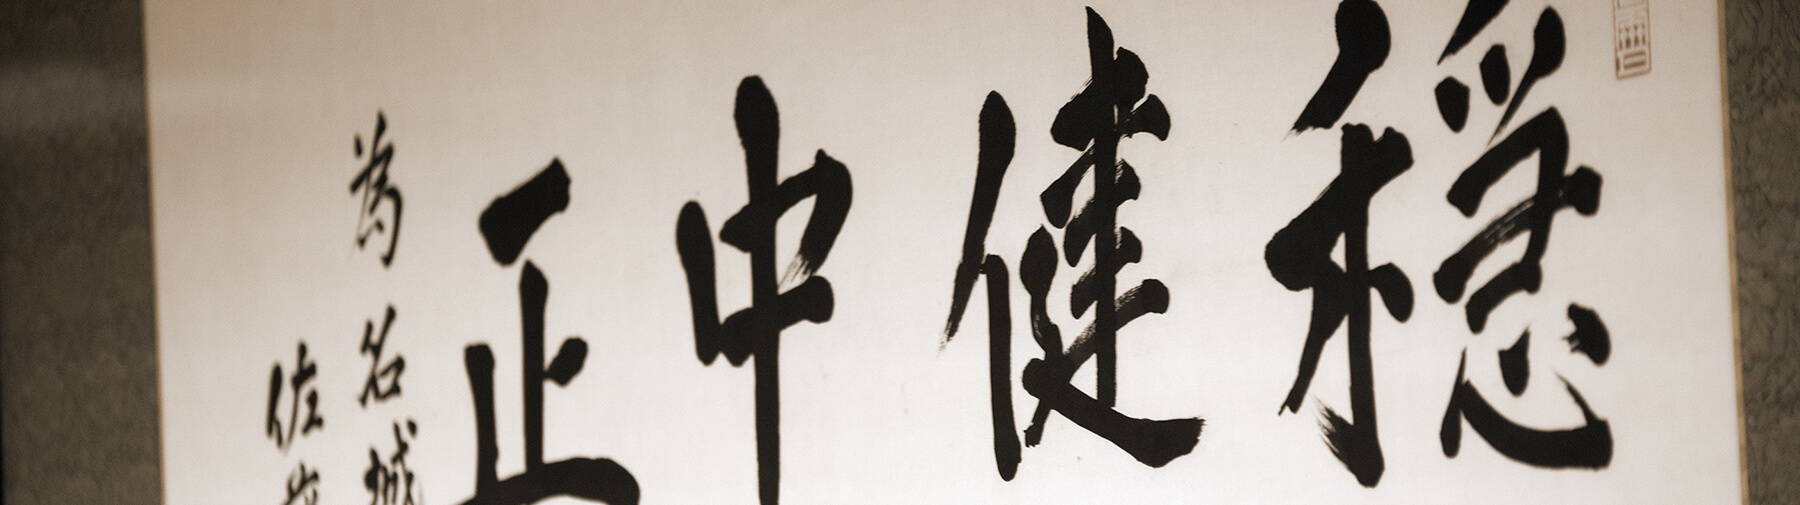 穏健中正
為名城
佐